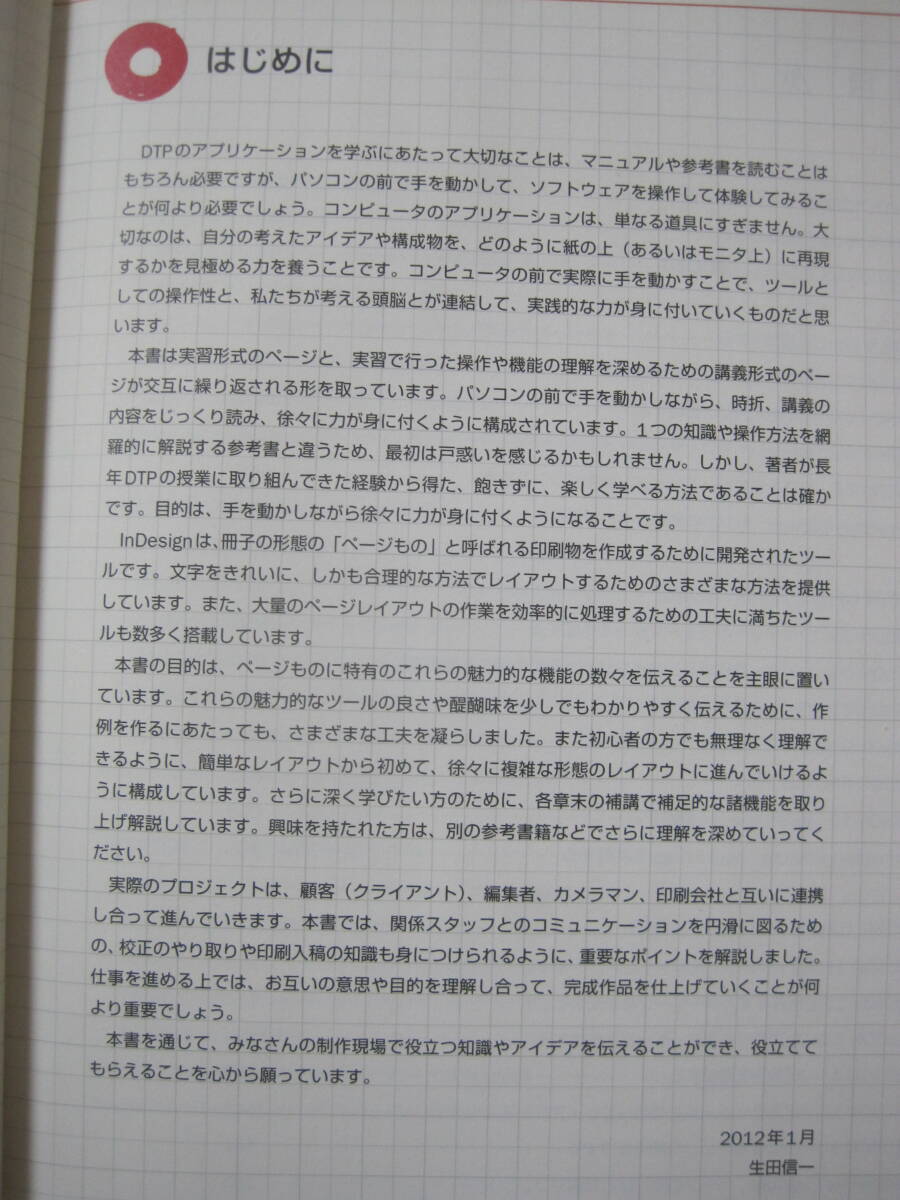 はじめに
DTPのアプリケーションを学ぶにあたって大切なことは、マニュアルや参考書を読むことは
もちろん必要ですが、パソコンの前で手を動かして、ソフトウェアを操作して体験してみるこ
とが何より必要でしょう。コンピュータのアプリケーションは、単なる道具にすぎません。大
切なのは、自分の考えたアイデアや構成物を、どのように紙の上（あるいはモニタ上）に再現
するかを見極める力を養うことです。コンピュータの前で実際に手を動かすことで、ツールと
しての操作性と、私たちが考える頭脳とが連結して、実践的な力が身に付いていくものだと思
います。
本書は実習形式のページと、実習で行った操作や機能の理解を深めるための講義形式のペー
ジが交互に繰り返される形を取っています。パソコンの前で手を動かしながら、時折、講義の
内容をじっくり読み、徐々に力が身に付くように構成されています。1つの知識や操作方法を網
羅的に解説する参考書と違うため、最初は戸惑いを感じるかもしれません。しかし、著者が長
年DTPの授業に取り組んできた経験から得た、飽きずに、楽しく学べる方法であることは確か
です。目的は、手を動かしながら徐々に力が身に付くようになることです。
InDesignは、冊子の形態の「ページもの」と呼ばれる印刷物を作成するために開発されたツー
ルです。文字をきれいに、しかも合理的な方法でレイアウトするためのさまざまな方法を提供
しています。また、大量のページレイアウトの作業を効率的に処理するための工夫に満ちたツー
ルも数多く搭載しています。
本書の目的は、ページものに特有のこれらの魅力的な機能の数々を伝えることを主眼に置い
ています。これらの魅力的なツールの良さや醍醐味を少しでもわかりやすく伝えるために、作
例を作るにあたっても、さまざまな工夫を凝らしました。また初心者の方でも無理なく理解で
きるように、簡単なレイアウトから初めて、徐々に複雑な形態のレイアウトに進んでいけるよ
うに構成しています。さらに深く学びたい方のために、各章末の補講で補足的な諸機能を取り
上げ解説しています。興味を持たれた方は、別の参考書籍などでさらに理解を深めていってく
ださい。
実際のプロジェクトは、顧客（クライアント）、編集者、カメラマン、印刷会社と互いに連携
し合って進んでいきます。本書では、関係スタッフとのコミュニケーションを円滑に図るため
の、校正のやり取りや印刷入稿の知識も身につけられるように、重要なポイントを解説しました。
仕事を進める上では、お互いの意思や目的を理解し合って、完成作品を仕上げていくことが何
より重要でしょう。
本書を通じて、みなさんの制作現場で役立つ知識やアイデアを伝えることができ、役立てて
もらえることを心から願っています。
2012年1月
生田信一